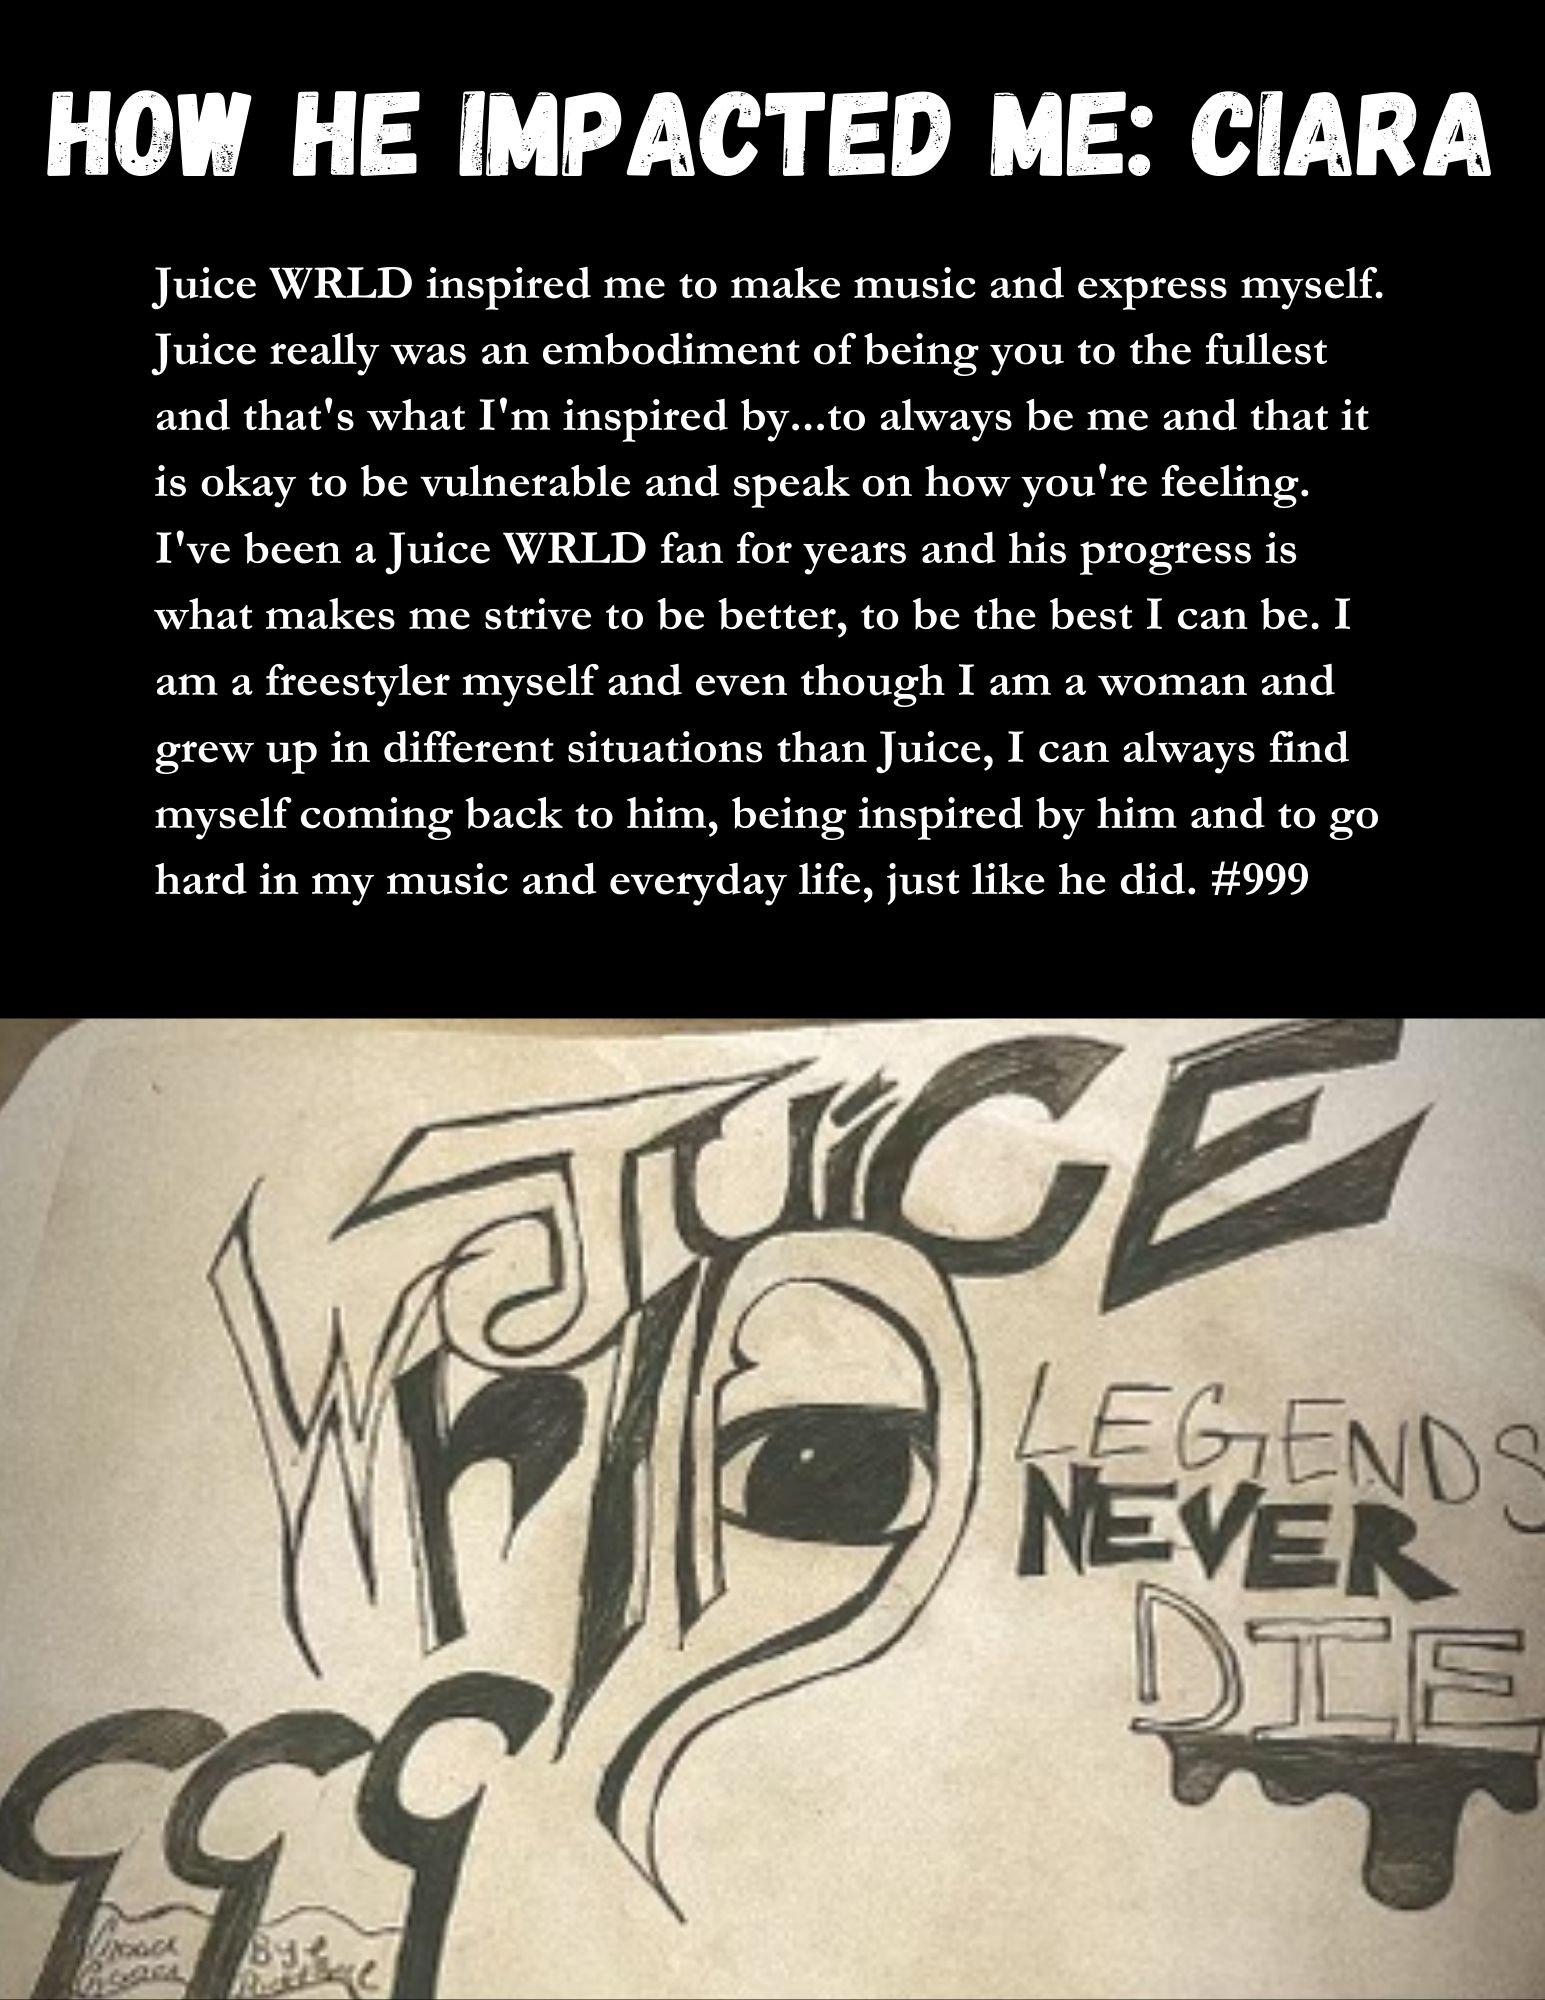 HOW HE IMPACTED ME: CIARA
Juice WRLD inspired me to make music and express myself.
Juice really was an embodiment of being you to the fullest
and that's what I'm inspired by...to always be me and that it
is okay to be vulnerable and speak on how you're feeling.
I've been a Juice WRLD fan for years and his progress is
what makes me strive to be better, to be the best I can be. I
am a freestyler myself and even though I am a woman and
grew up in different situations than Juice, I can always find
myself coming back to him, being inspired by him and to go
hard in my music and everyday life, just like he did. #999
JUiCE
WrlD
LEGENDS
NEVER
DIE
999